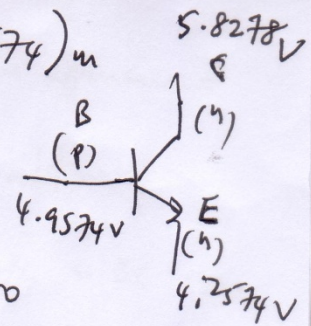 74)m
5.8278V
C
B
(n)
(P)
E
4.9574V
(n)
4.2574V